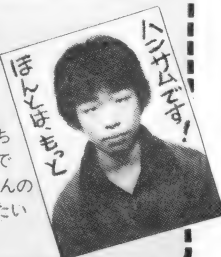 ほんとは、もっと
ハンサムです!
ち
で
んの
たい